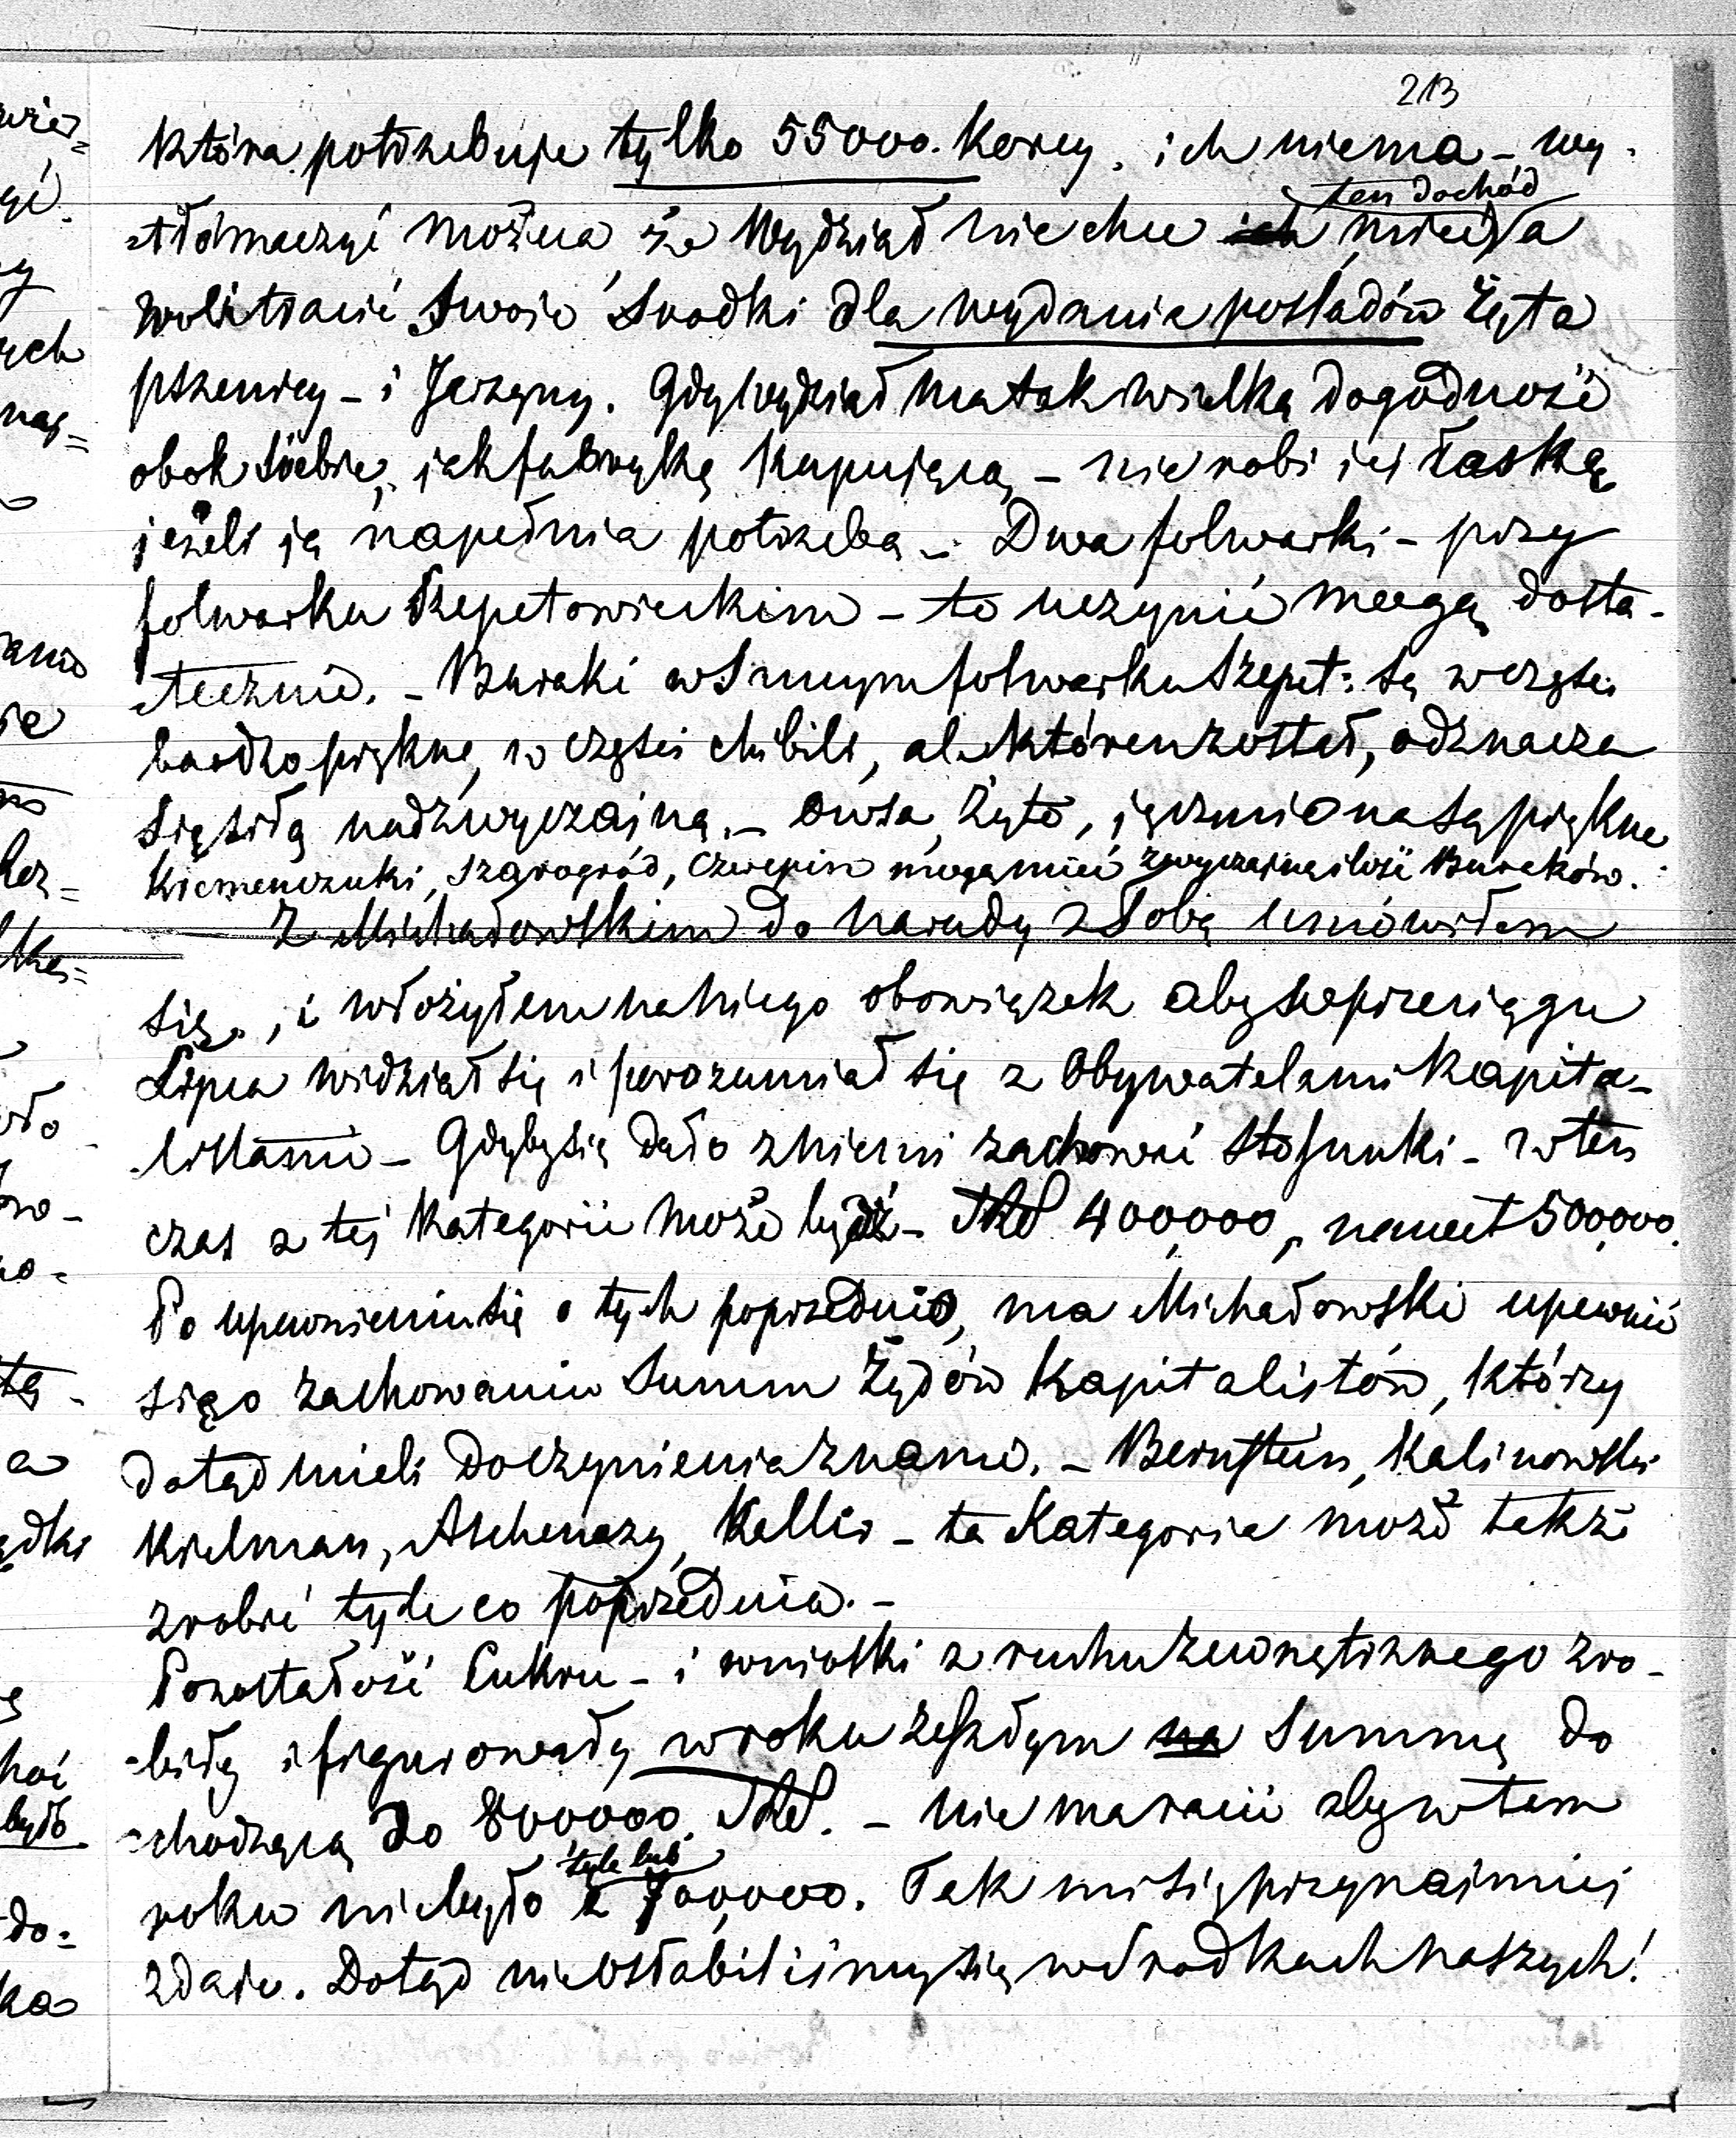 213
która potrzebuje tylko 55000. korcy. ich niema – wy-
ten dochód
tłómaczyć można, że Wydział nie chce ich mieć, a
woli tracić Swoje Srodki dla wydania pośladów Żyta
pszenicy – i Jarzyny. Gdy wydział ma tak wielką dogodność
obok Siebie, jak fabrykę kupującą – nie robi jej łaskę
jeżeli ją napełnia potrzebą – Dwa folwarki – przy
folwarku Szepetowieckim – to uczynić mogą dosta-
tecznie. – Buraki w Samym folwarku Szepet: są w części
bardzo piękne, w części chibili, ale któren został, odznacza
się siłą nadzwyczajną. – Owsa, Żyto, jęczmiona są piękne
Kremenczuki, Szarogród, Czerepin mogą mieć zwyczajną ilość Buraków.
Z Michałowskim do narady z Sobą umówiłem
się, i włożyłem na niego obowiązek aby w przeciągu
Lipca widział się i porozumiał się z Obywatelami Kapita-
listami – Gdyby się dało z niemi zachować Stosunki – w ten
czas z tej Kategorii może bydź – 400,000, nawet 500,000.
Po upewnieniu się o tych poprzednio, ma Michałowski upewnić
się o zachowaniu Summ Żydów Kapitalistów, którzy
dotąd mieli do czynienia z nami. – Bernstein, Kalinowski
Kielman, Aschenazy, Keller – ta Kategoria może także
zrobić tyle co poprzednia. –
Pozostałość Cukru – i wnioski z ruchu zewnętrznego zro-
biły i figurowały w roku zeszłym na Summę do
chodzącą do 800000. – nie ma racii aby w tem
tyle lub
roku nie było z 700,000. Tak mi się przynajmniej
zdaje. Dotąd nie osłabiliśmy się w Srodkach naszych!